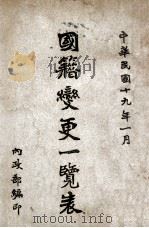 中華民國十九年一月
國籍變更一覽表
內政部編印